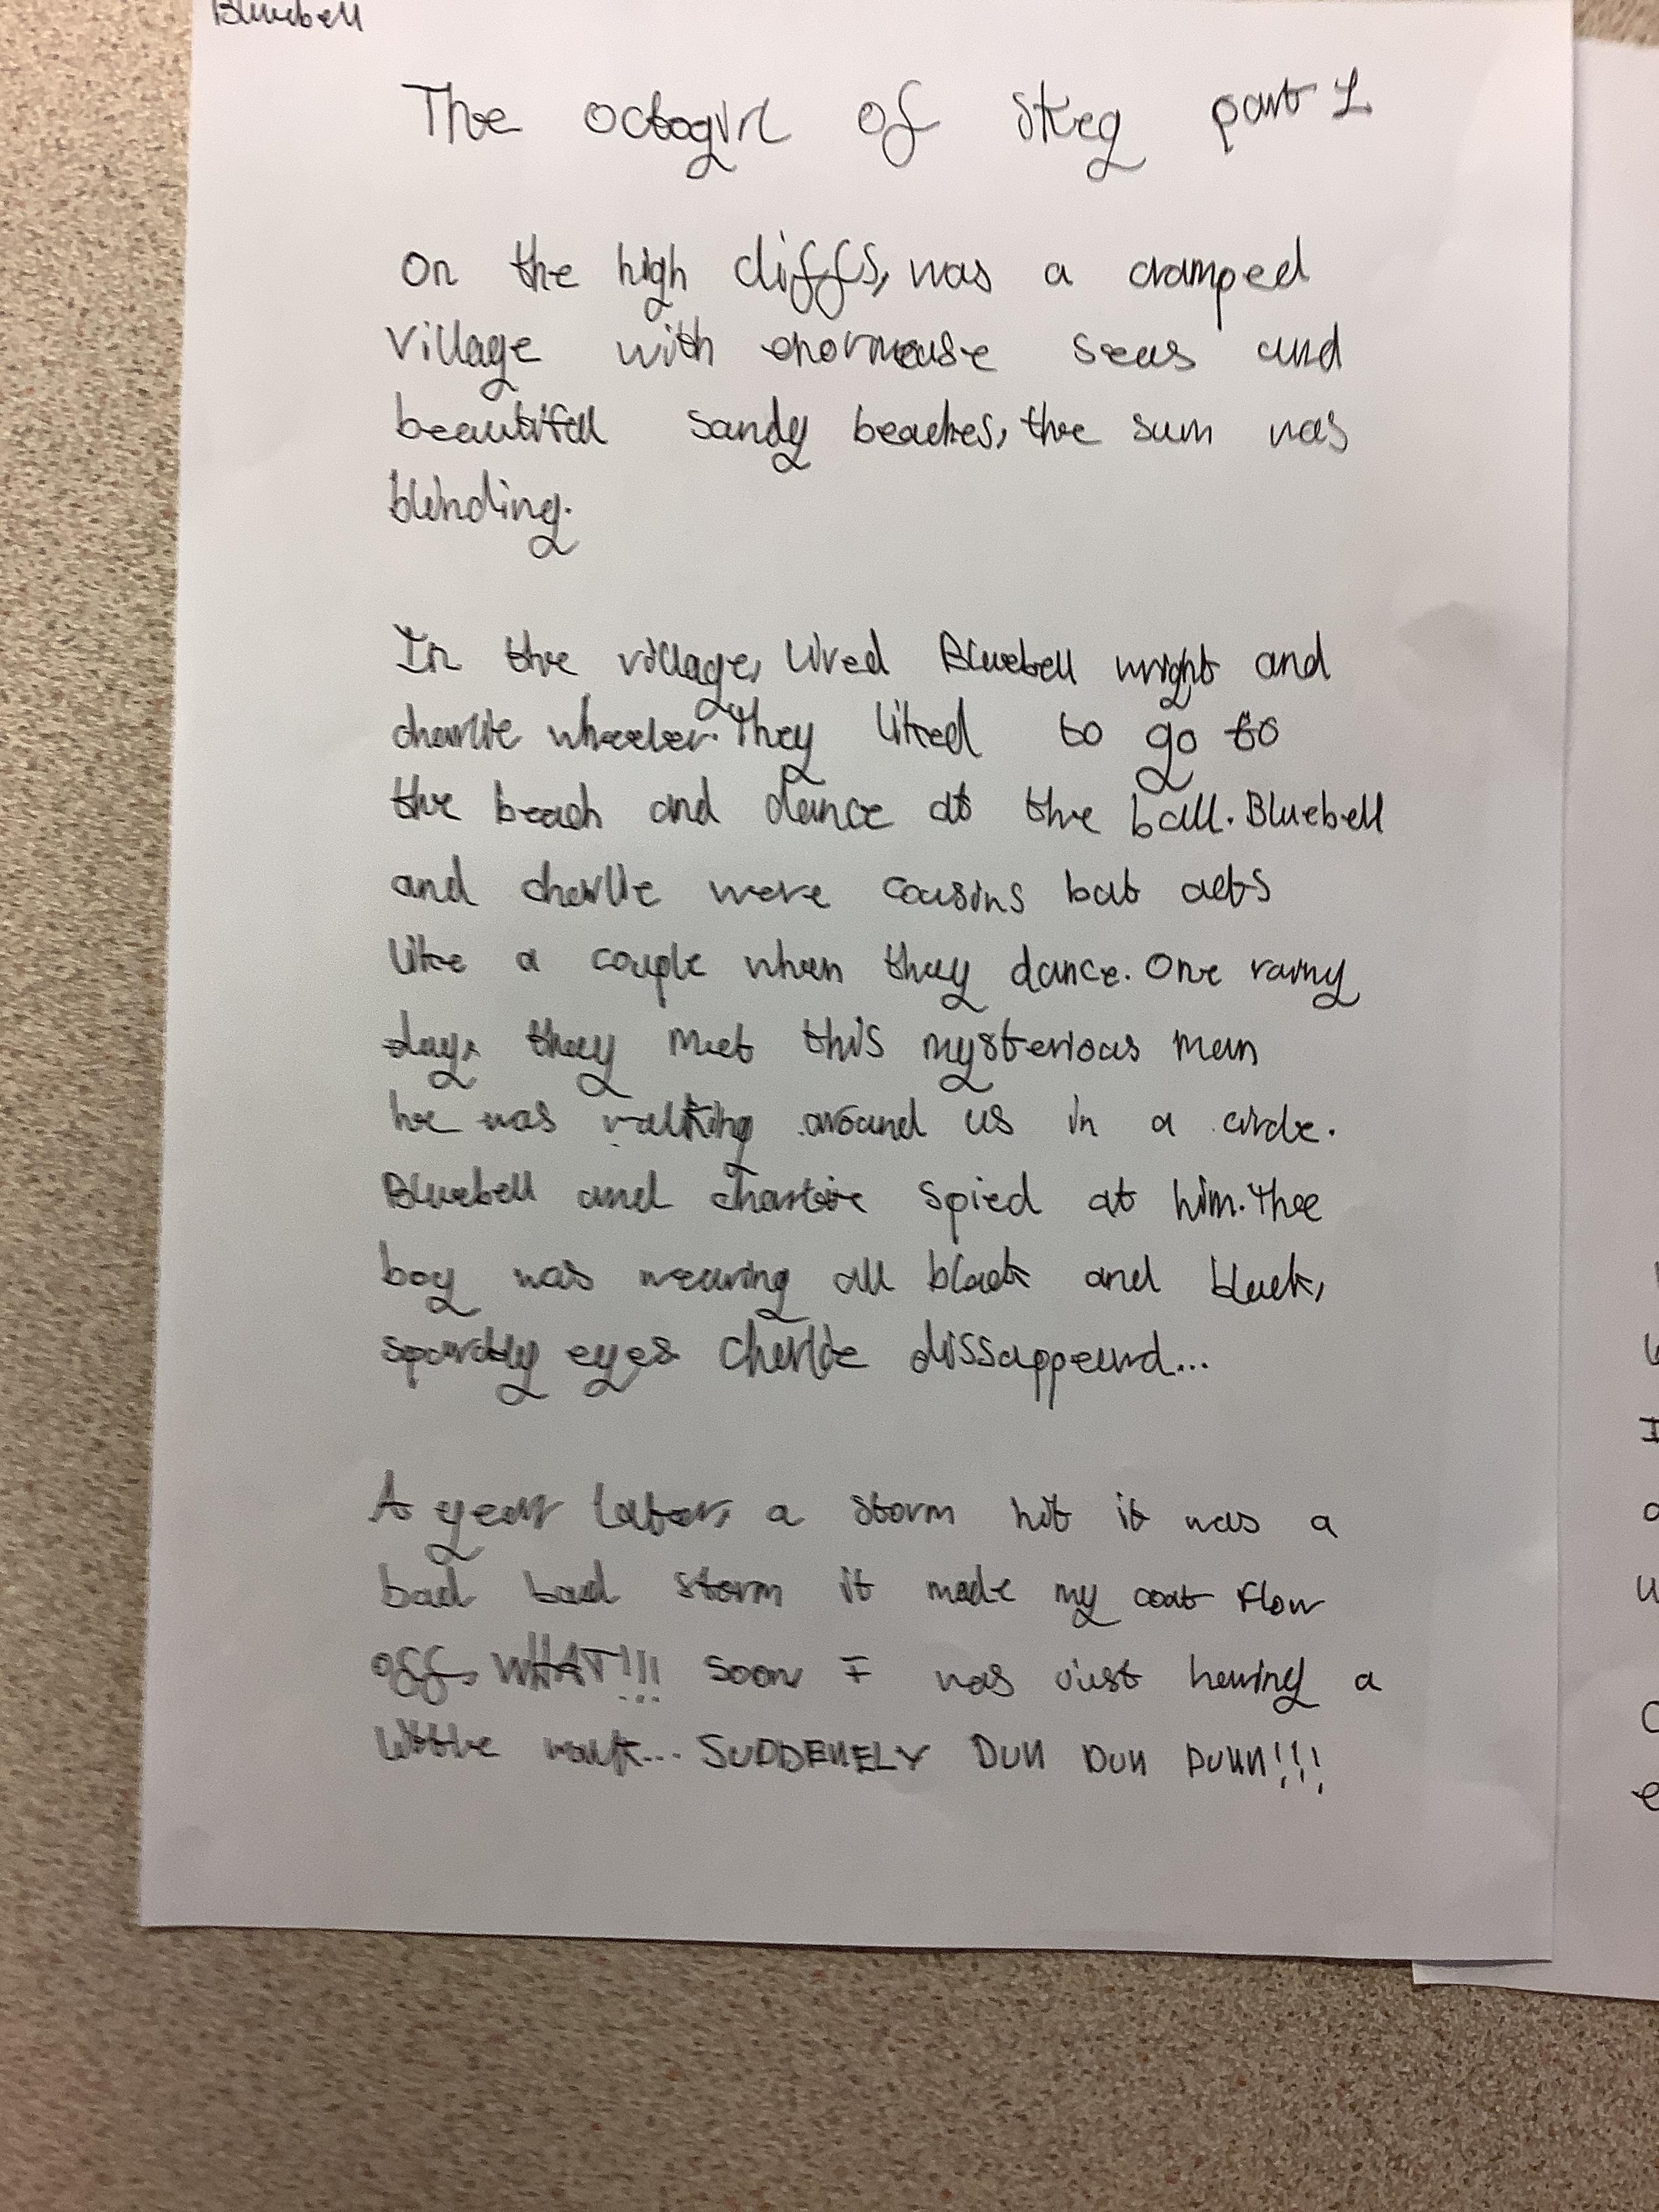 Bluebell
The octogirl of Skeg part 1
On the high cliffs, was a cramped
village with enormouse seas and
beautifull sandy beaches, the sun was
blinding.
In the village, lived Bluebell wright and
charlie wheeler. They liked to go to
the beach and dance at the ball. Bluebell
and charlie were cousins but acts
like a couple when they dance. One rainy
day, they meet this mysterious man
he was walking around us in a circle.
Bluebell and charlie spied at him. The
boy was wearing all black and black,
sparkly eyes. Charlie dissappeard...
A year later, a storm hit it was a
bad bad storm it made my coat flow
off, WHAT!!! soon I was just having a
little walk... SUDDENELY DUN DUN DUNN!!!